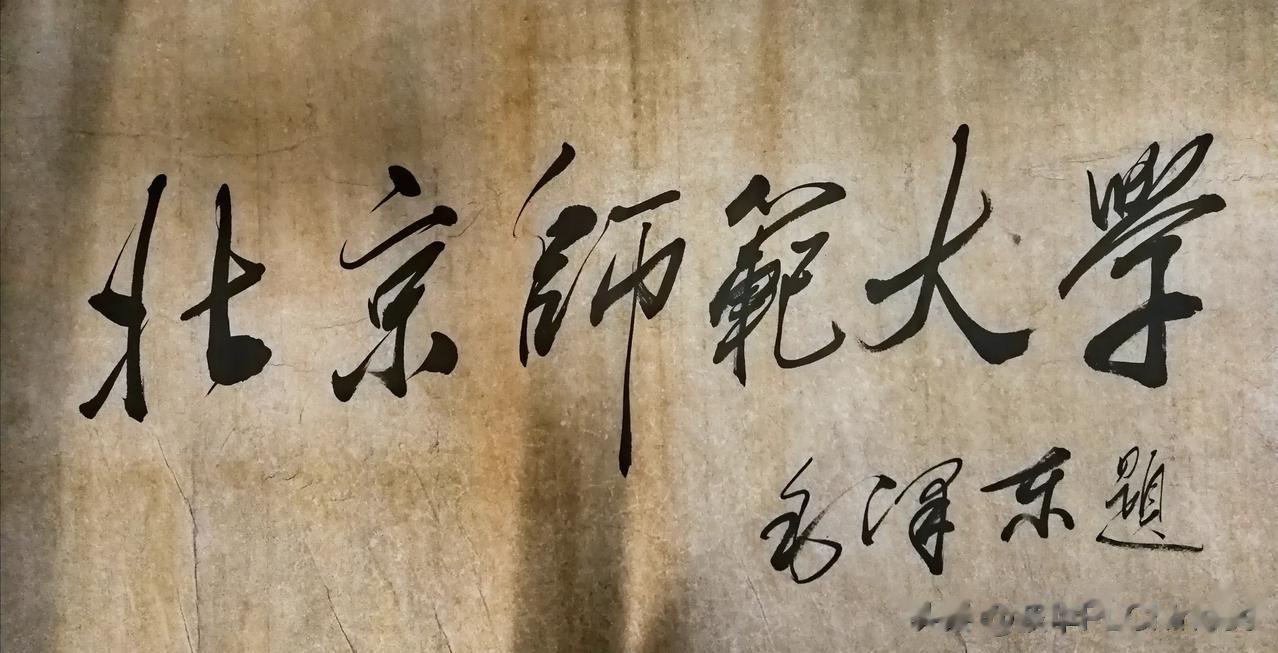 北京師範大學
毛澤东題